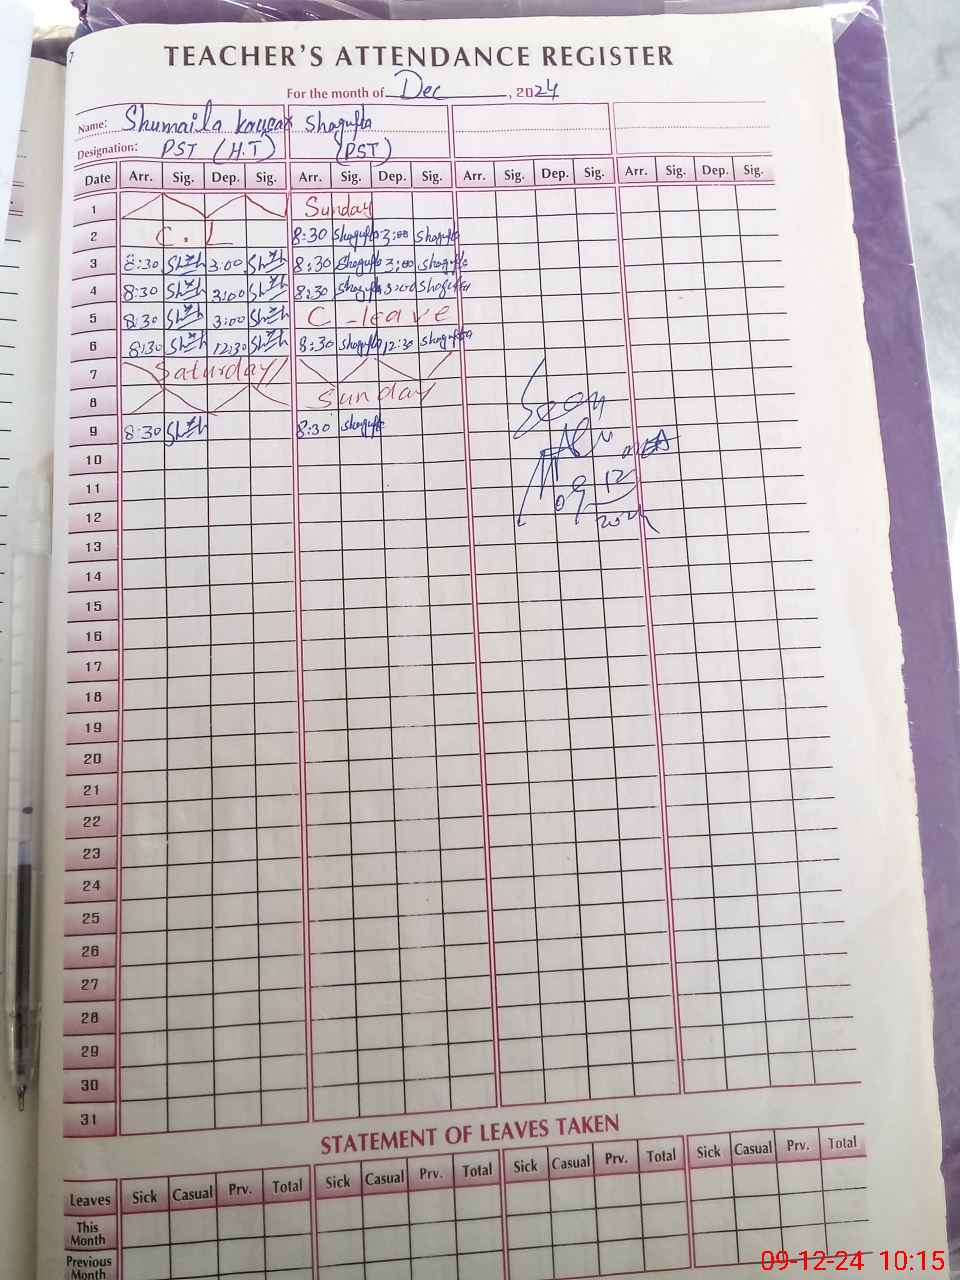 7
TEACHER'S ATTENDANCE REGISTER
For the month of Dec, 2024
Name: Shumaila Kousar Shagufta
Designation: PST (H.T) (PST)
Date Arr. Sig. Dep. Sig. Arr. Sig. Dep. Sig. Arr. Sig. Dep. Sig. Arr. Sig. Dep. Sig.
1 Sunday
2 C.L 8:30 Shagufta 3:00 Shagufta
3 8:30 3:00 8:30 Shagufta 3:00 Shagufta
4 8:30 3:00 8:30 Shagufta 3:00 Shagufta
5 8:30 3:00 C-leave
6 8:30 12:30 8:30 Shagufta 12:30 Shagufta
7 Saturday
8 Sunday
9 8:30 8:30 Shagufta
Seen
10
11
09 12
12
2024
13
14
15
16
17
18
19
20
21
22
23
24
25
26
27
28
29
30
31
STATEMENT OF LEAVES TAKEN
Leaves Sick Casual Prv. Total Sick Casual Prv. Total Sick Casual Prv. Total Sick Casual Prv. Total
This Month
Previous Month
09-12-24 10:15